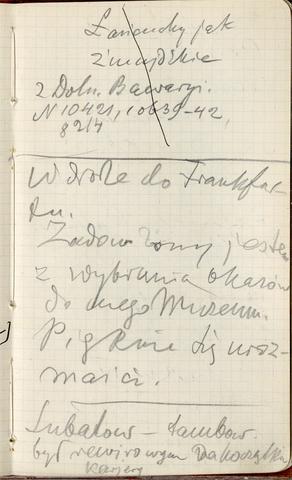 Łańcuchy jak
żmudzkie
z Doln. Bawaryi.
N 10421, 10639-42,
8214
W drodze do Frankfur
tu.
Zadowolony jestem
z wybrania okazów
do mego Muzeum.
Pięknie się uroz-
maici.
Lubatow – Tambow.
był rewirowym na początku
kariery